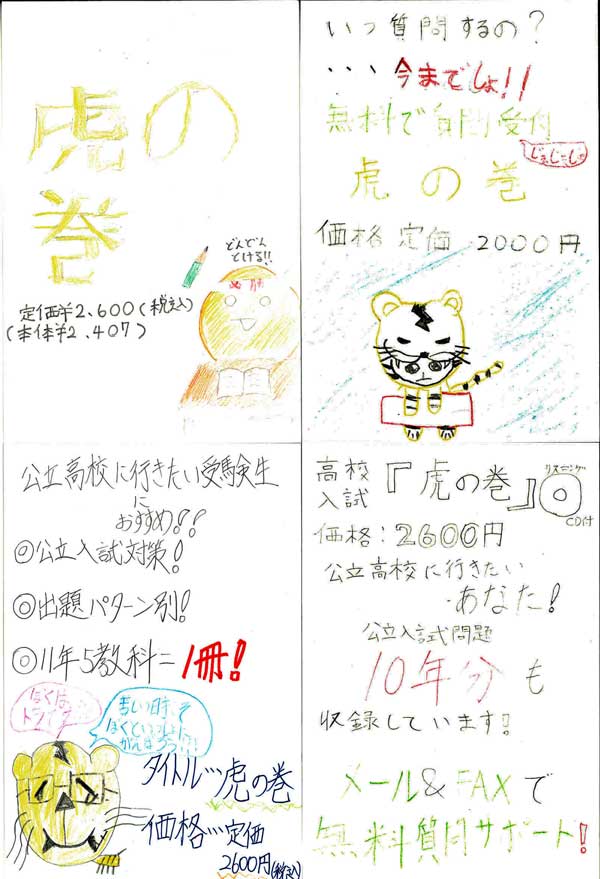 虎の
巻
どんどん
とける!!
必勝
定価¥2,600(税込)
(本体¥2,407)
いつ質問するの?
・・・今までしょ!!
無料で質問受付
虎の巻
価格 定価 2000円
公立高校に行きたい受験生
に
おすすめ!!
◎公立入試対策!
◎出題パターン別!
◎11年5教科=1冊!
ぼくは
トライ
苦しい時こそ
ぼくといっしょに
がんばろう!!
タイトル…虎の巻
価格…定価
2600円(税込)
高校
入試『虎の巻』
リスニング
CD付
価格:2600円
公立高校に行きたい
・あなた!
公立入試問題
10年分も
収録しています!
メール&FAXで
無料質問サポート!